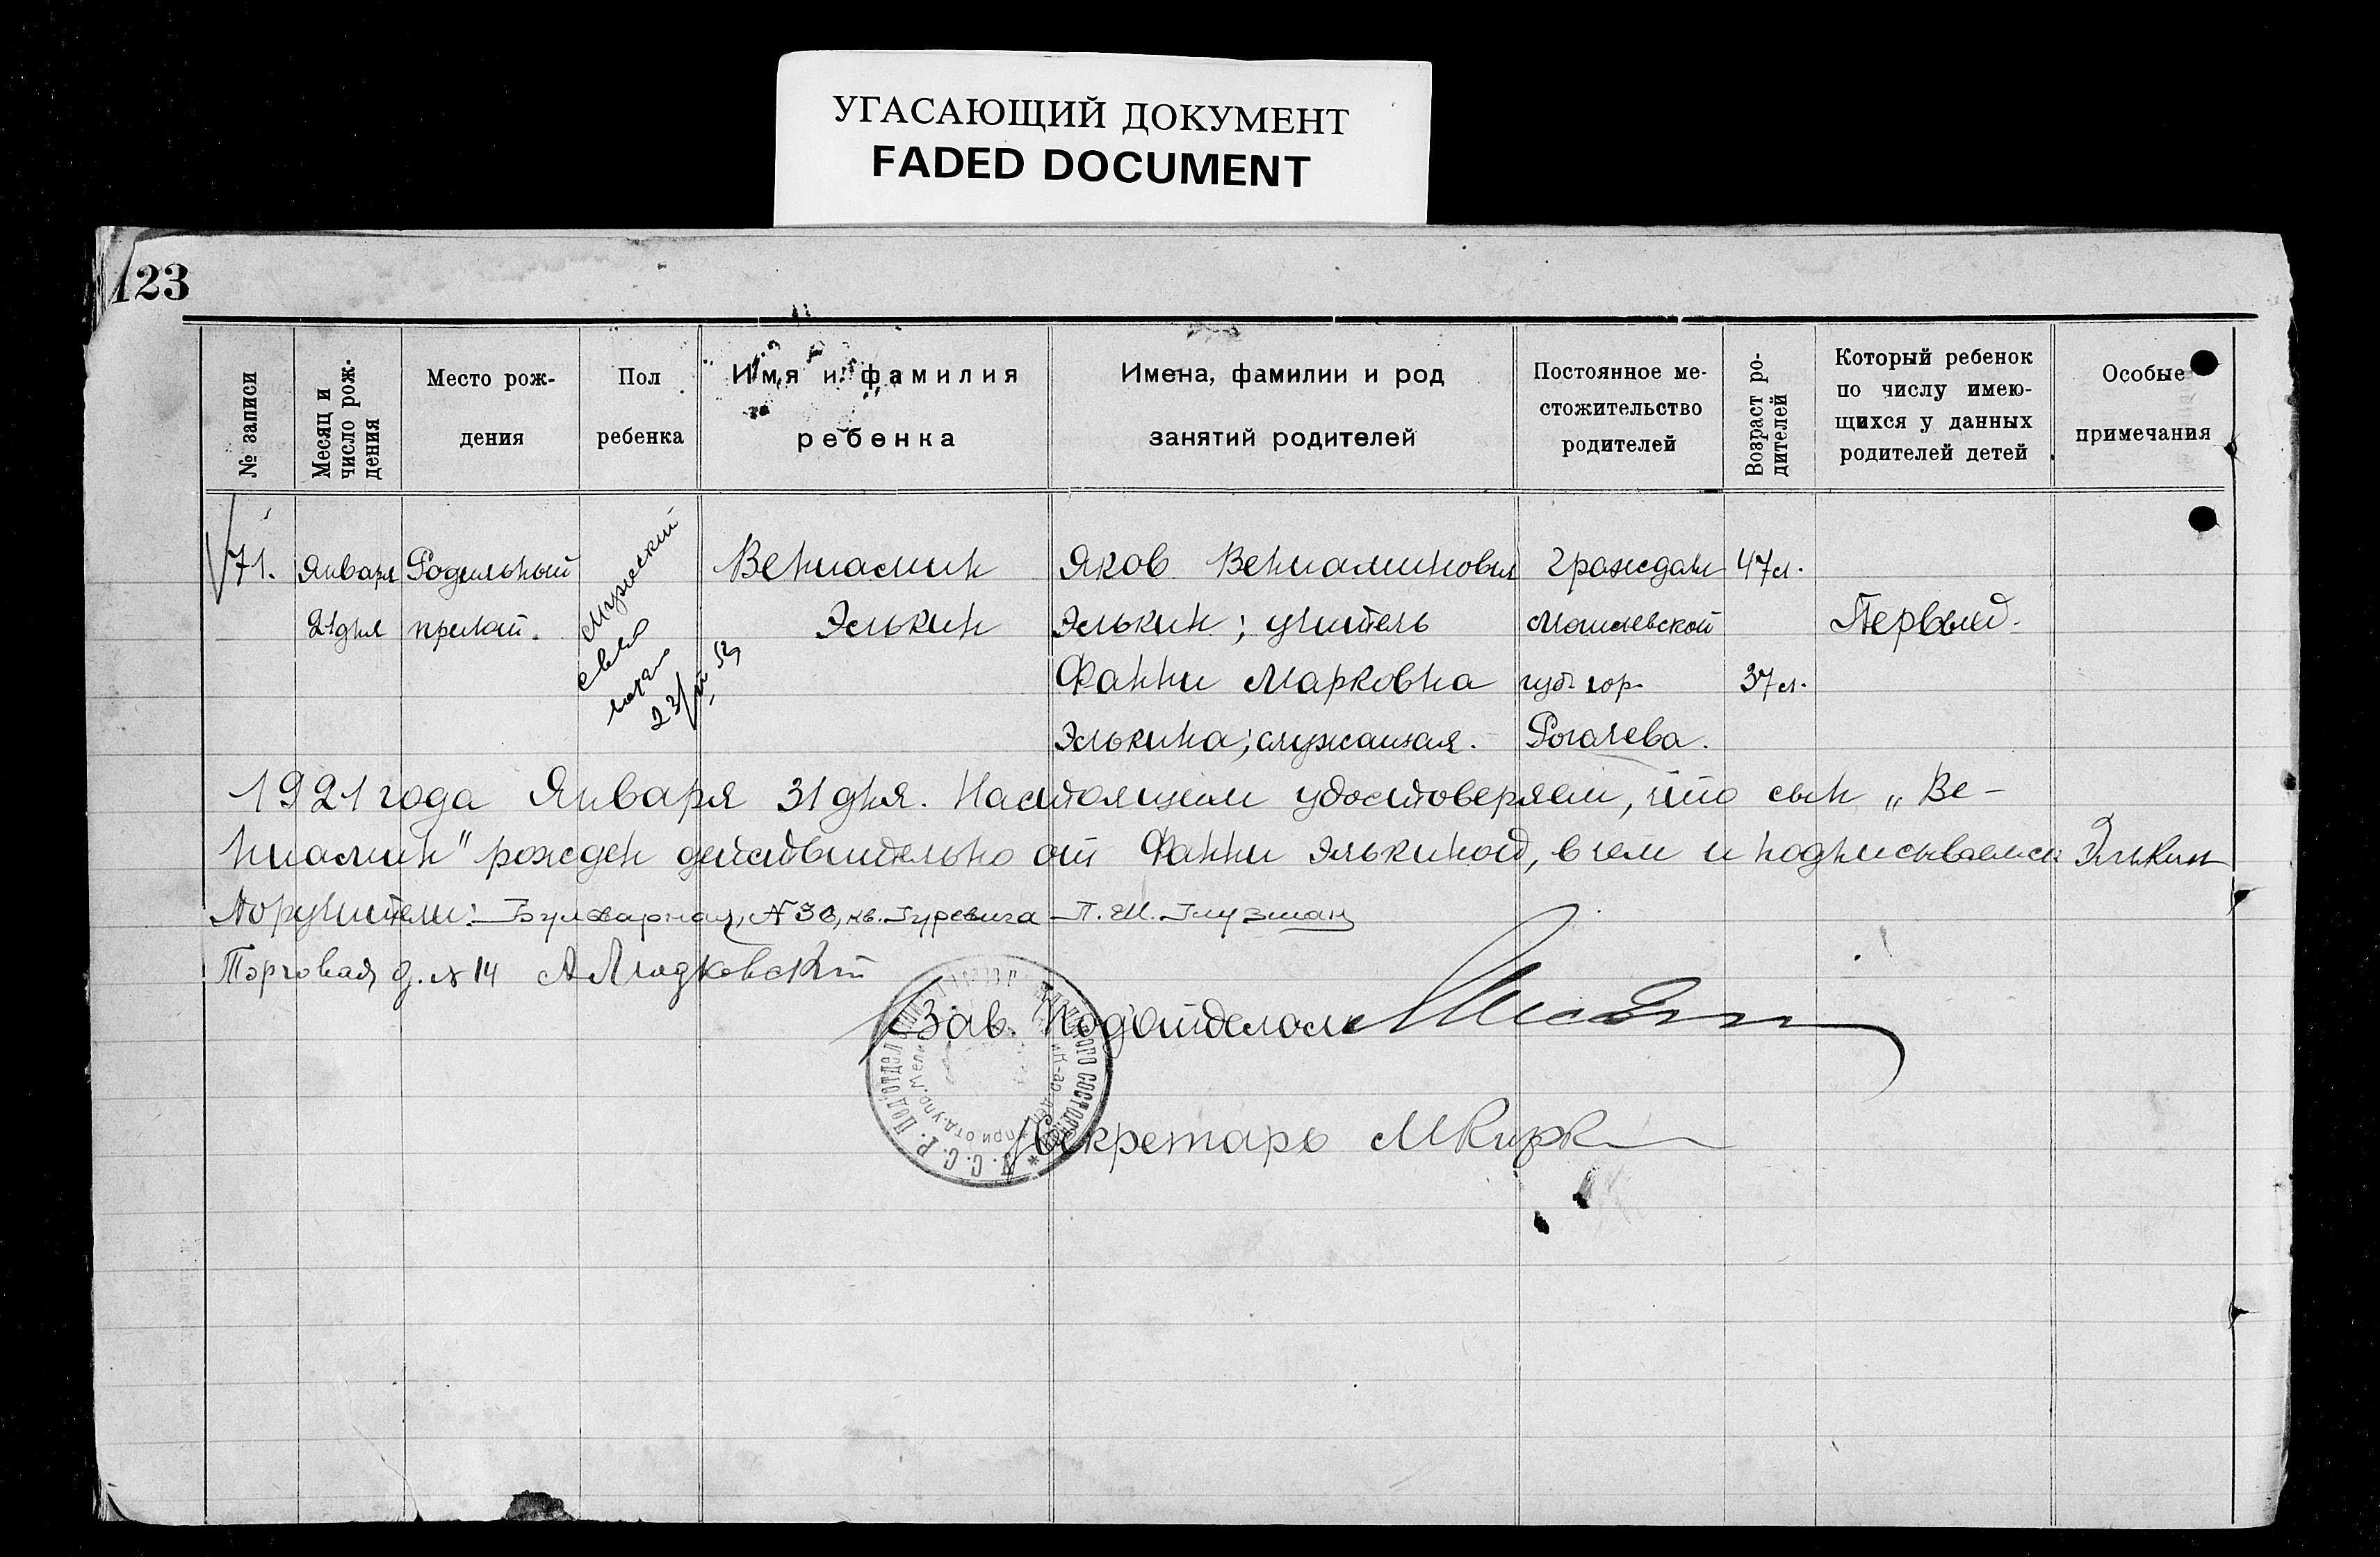 УГАСАЮЩИЙ ДОКУМЕНТ
FADED DOCUMENT
123
№ записи
Месяц и
число рож-
дения
Место рож-
дения
Пол
ребенка
Имя и фамилия
ребенка
Имена, фамилии и род
занятий родителей
Постоянное ме-
стожительство
родителей
Возраст ро-
дителей
Который ребенок
по числу имею-
щихся у данных
родителей детей
Особые
примечания
71.
Января
21 дня
Родильный
приют.
Мужеский
23/
Вениамин
Элькин
Яков Вениаминович
Элькин; учитель
Фанни Марковна
Элькина; служащая.
Граждан
Могилевской
губ. гор.
Рогачева.
47 л.
37 л.
Первый.
1921 года Января 31 дня. Настоящим удостоверяем, что сын „Ве-
ниамин" рожден действительно от Фанни Элькиной, в чем и подписываемся Элькин
Поручители: Бульварная, № 30, кв. Гуревича П. Ш. Глузман
Торговая д. № 14
Зав. Подотделом
Секретарь